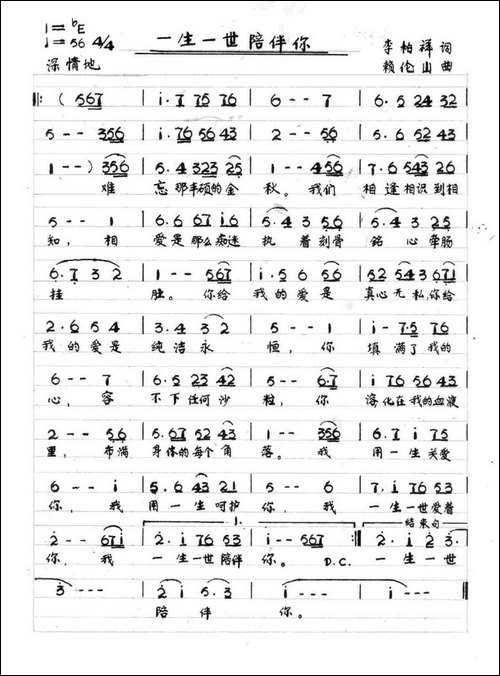 1=ᵇE
♩=56 4/4 一生一世陪伴你 李柏祥 词
深情地 赖伦山 曲
‖: ( 567 | i·7 75 76 | 6 - - 7 | 6·5 24 32
5 - - 356 | i·76 56 43 | 2 - - 56 | 5·6 52 43
1 - - ) 356 | 5·4 323 25 | 1 - - 456 | 7·6 543 26
难 忘那丰硕的金 秋。我们 相逢相识到相
5 - - 1 | 6·6 67 i6 | 5·4 3 56 | 5·4 3 25
知,相 爱是那么痴迷 执着刻骨 铭心牵肠
6·7 3 2 | 1 - - 567 | i·5 6 56 | 52 543 671
挂 肚。你给 我的爱是 真心无私,你给
2·6 5 4 | 3·4 3 2 | 5 - - 1 | i - 7·5 76
我的爱是 纯洁永 恒,你 填满了我的
6 - - 7 | 6·5 23 42 | 5 - - 6·7 | i 76 56 43
心,容 不下任何沙 粒,你 溶化在我的血液
2 - - 56 | 5·67 52 43 | 1 - - 356 | 6·7 i 75
里,布满 身体的每个角 落。我 用一生关爱
6 - - i | 5·6 43 21 | 5 - - 6 | 7·i 76 53
你,我 用一生呵护 你,我 一生一世爱着
1. 结束句
2 - - 67i | 2·i 76 53 | i - - 567 :‖ 2·i 2 3·
你,我 一生一世陪伴 你。 D.C. 一生一世
3 - - - | 2 i 5·3 | i - - - | i - - - ‖
陪伴 你。